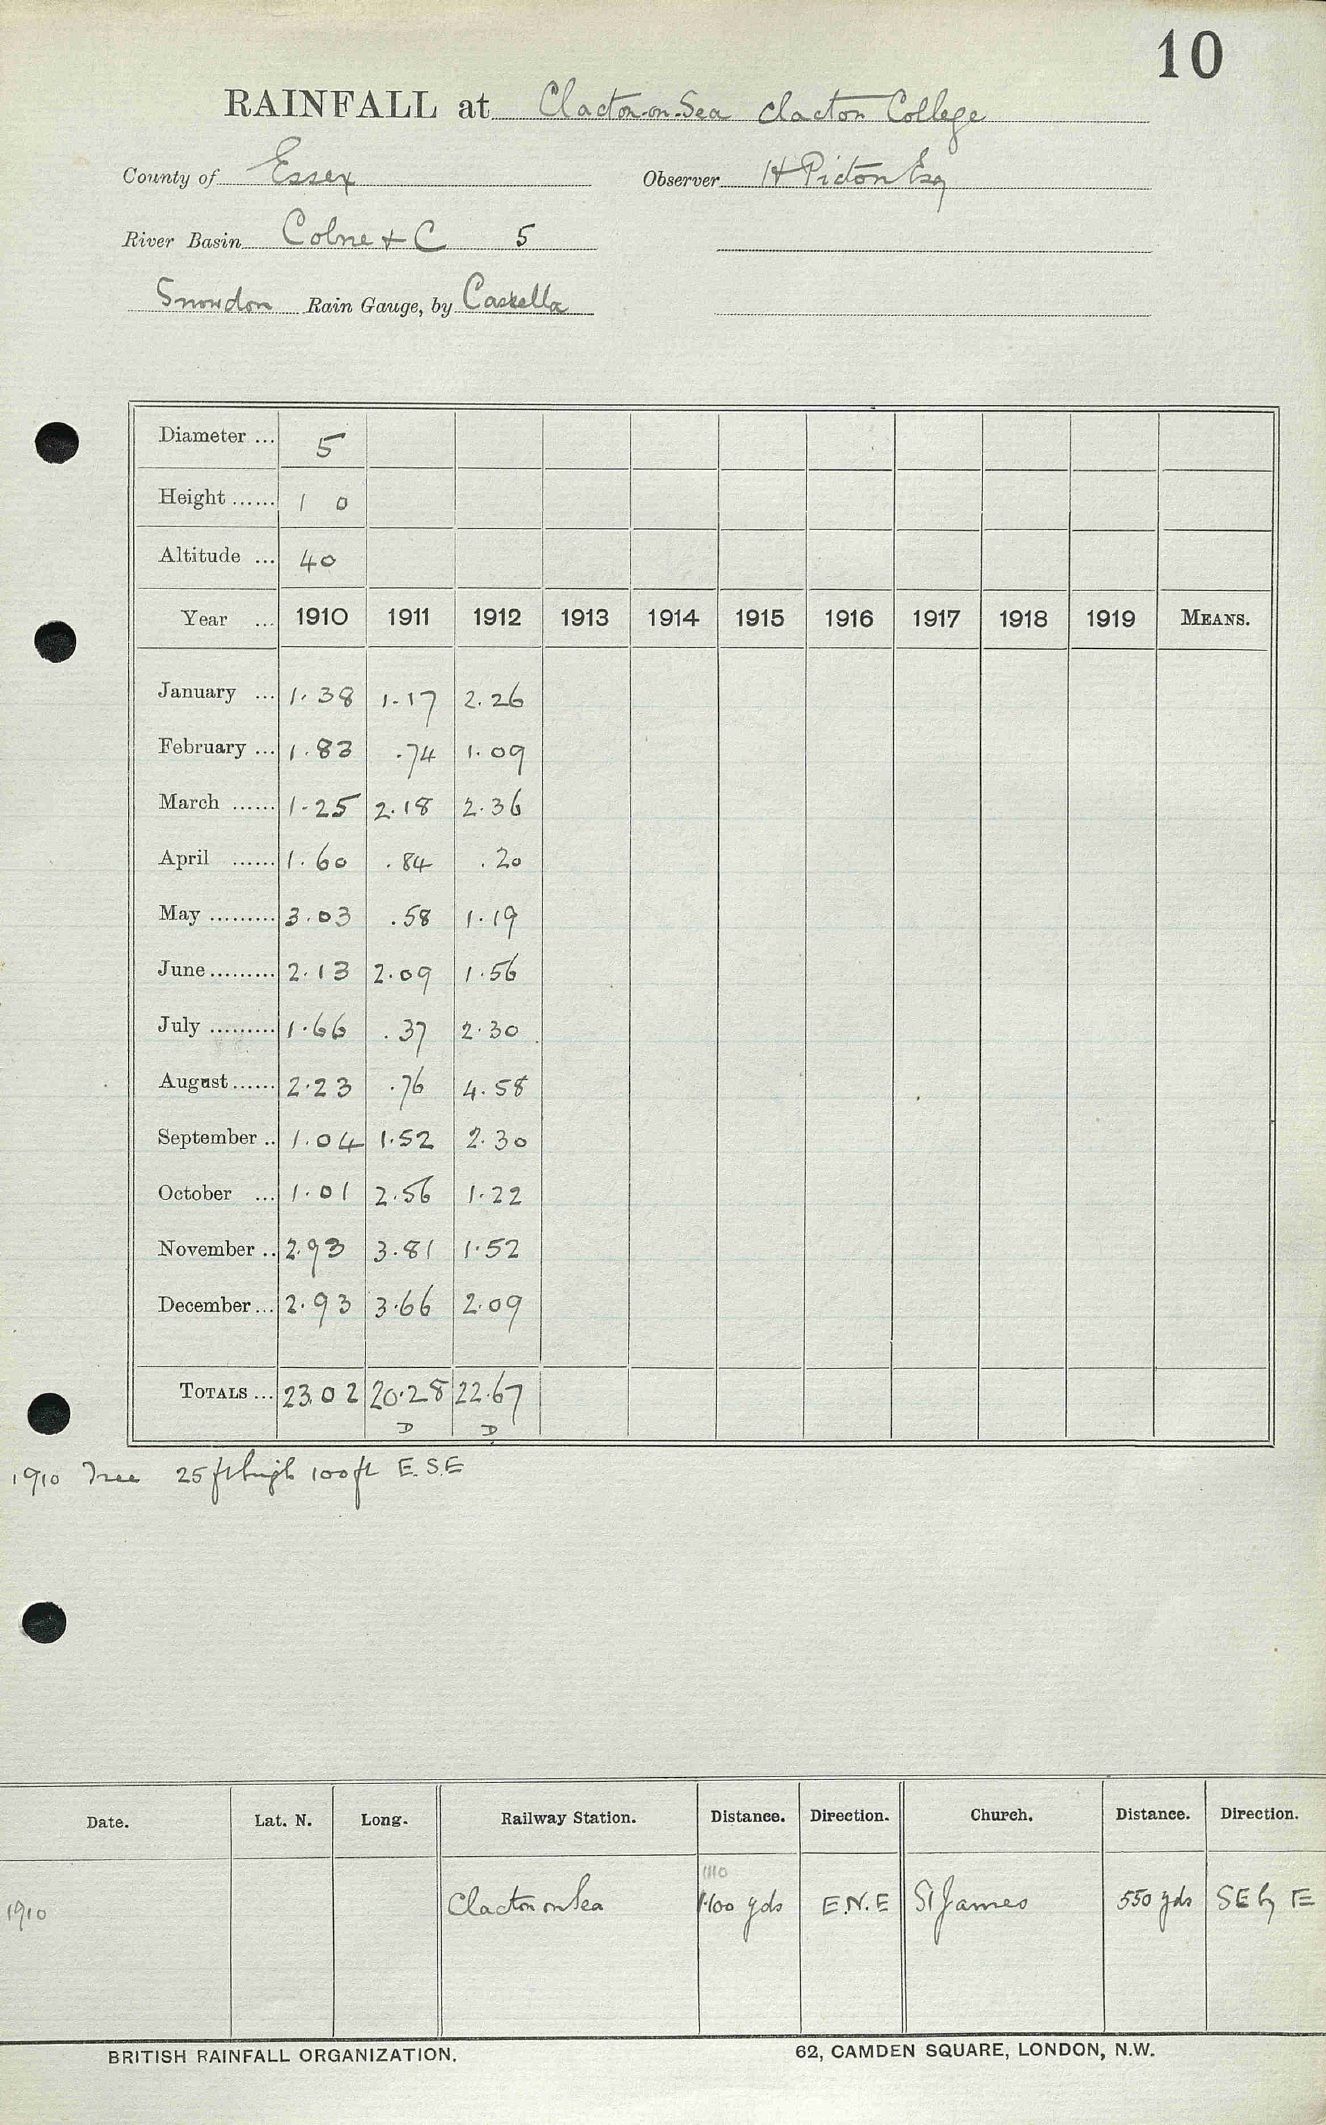 10
RAINFALL at Clacton-on-Sea Clacton College
County of Essex Observer H Picton Esq
River Basin Colne & C 5
Snowdon Rain Gauge, by Casella
Diameter ... 5
Height ...... 1 0
Altitude ... 40
Year ... 1910 1911 1912 1913 1914 1915 1916 1917 1918 1919 MEANS.
January ... 1.38 1.17 2.26
February ... 1.83 .74 1.09
March ...... 1.25 2.18 2.36
April ...... 1.60 .84 .20
May ......... 3.03 .58 1.19
June ......... 2.13 2.09 1.56
July ......... 1.66 .37 2.30
August ...... 2.23 .76 4.58
September .. 1.04 1.52 2.30
October ... 1.01 2.56 1.22
November .. 2.93 3.81 1.52
December ... 2.93 3.66 2.09
TOTALS ... 23.02 20.28 22.67
D D
1910 Tree 25 ft high 100 ft E.S.E
Date. Lat. N. Long. Railway Station. Distance. Direction. Church. Distance. Direction.
1110
1910 Clacton on Sea 1100 yds E.N.E St James 550 yds SE by E
BRITISH RAINFALL ORGANIZATION. 62, CAMDEN SQUARE, LONDON, N.W.